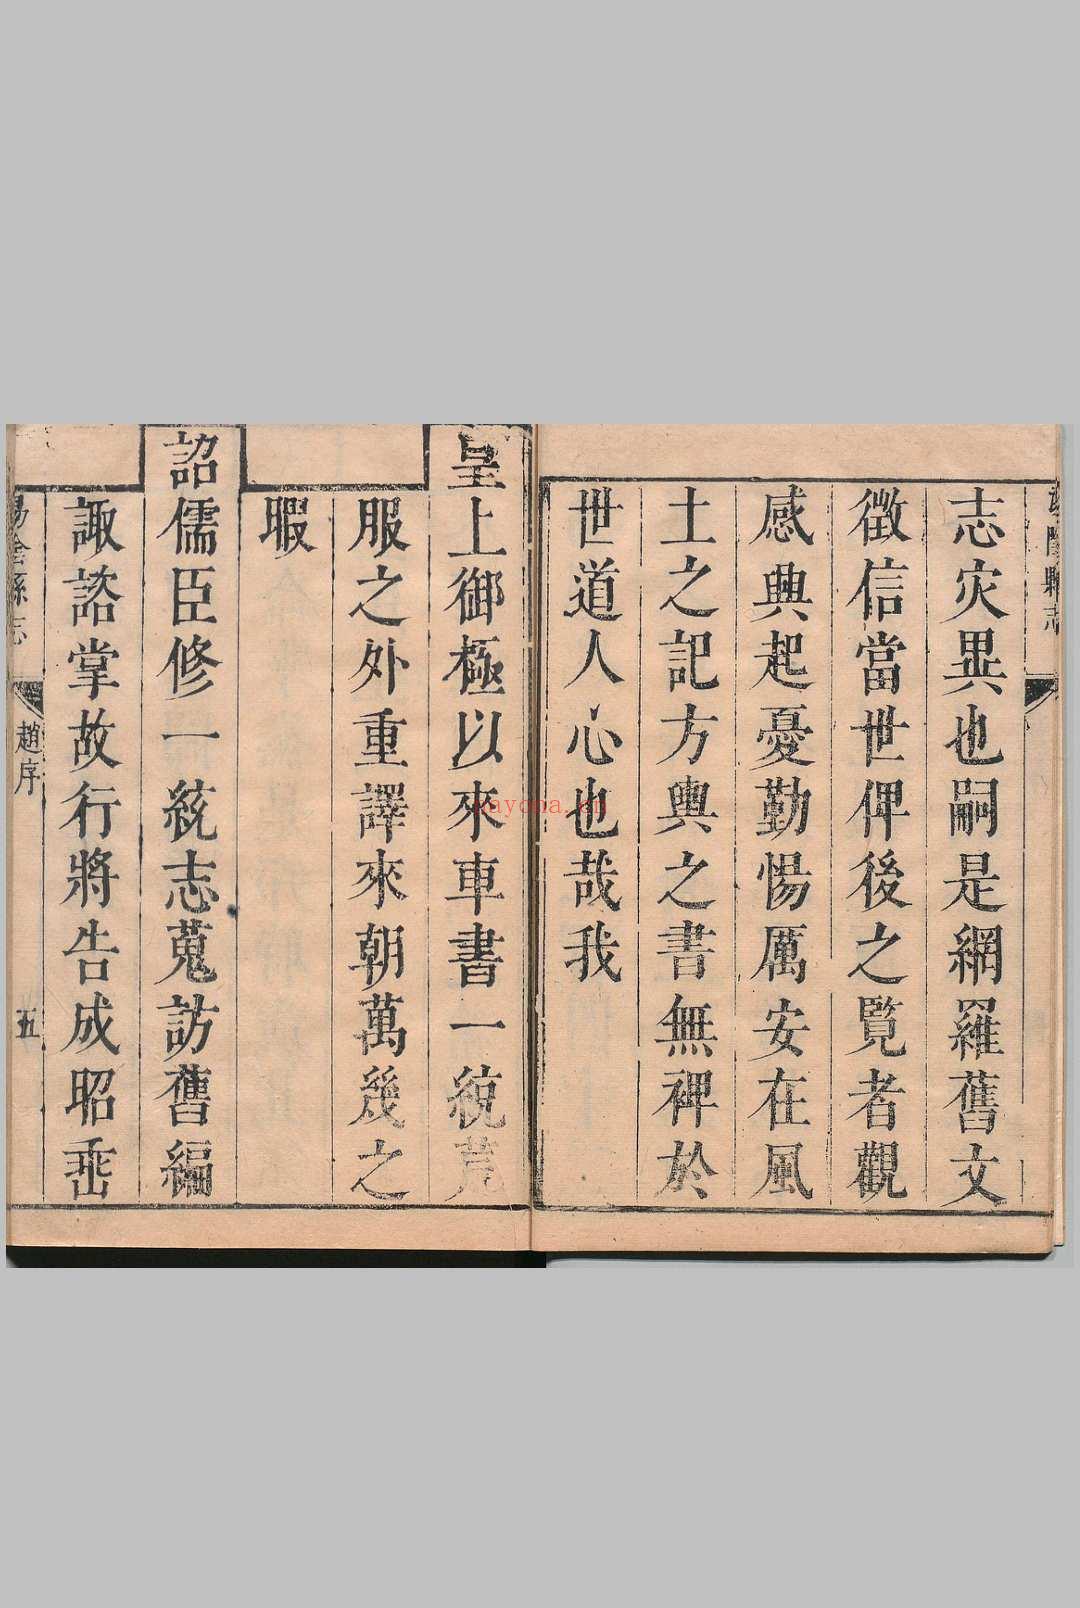 湯陰縣志
志灾異也嗣是網羅舊文
徵信當世俾後之覽者觀
感興起憂勤惕厲安在風
土之記方輿之書無裨於
世道人心也哉我
皇上御極以來車書一統荒
服之外重譯來朝萬幾之
暇
詔儒臣修一統志蒐訪舊編
諏諮掌故行將告成昭垂
湯陰縣志
趙序
五
nayona.cn